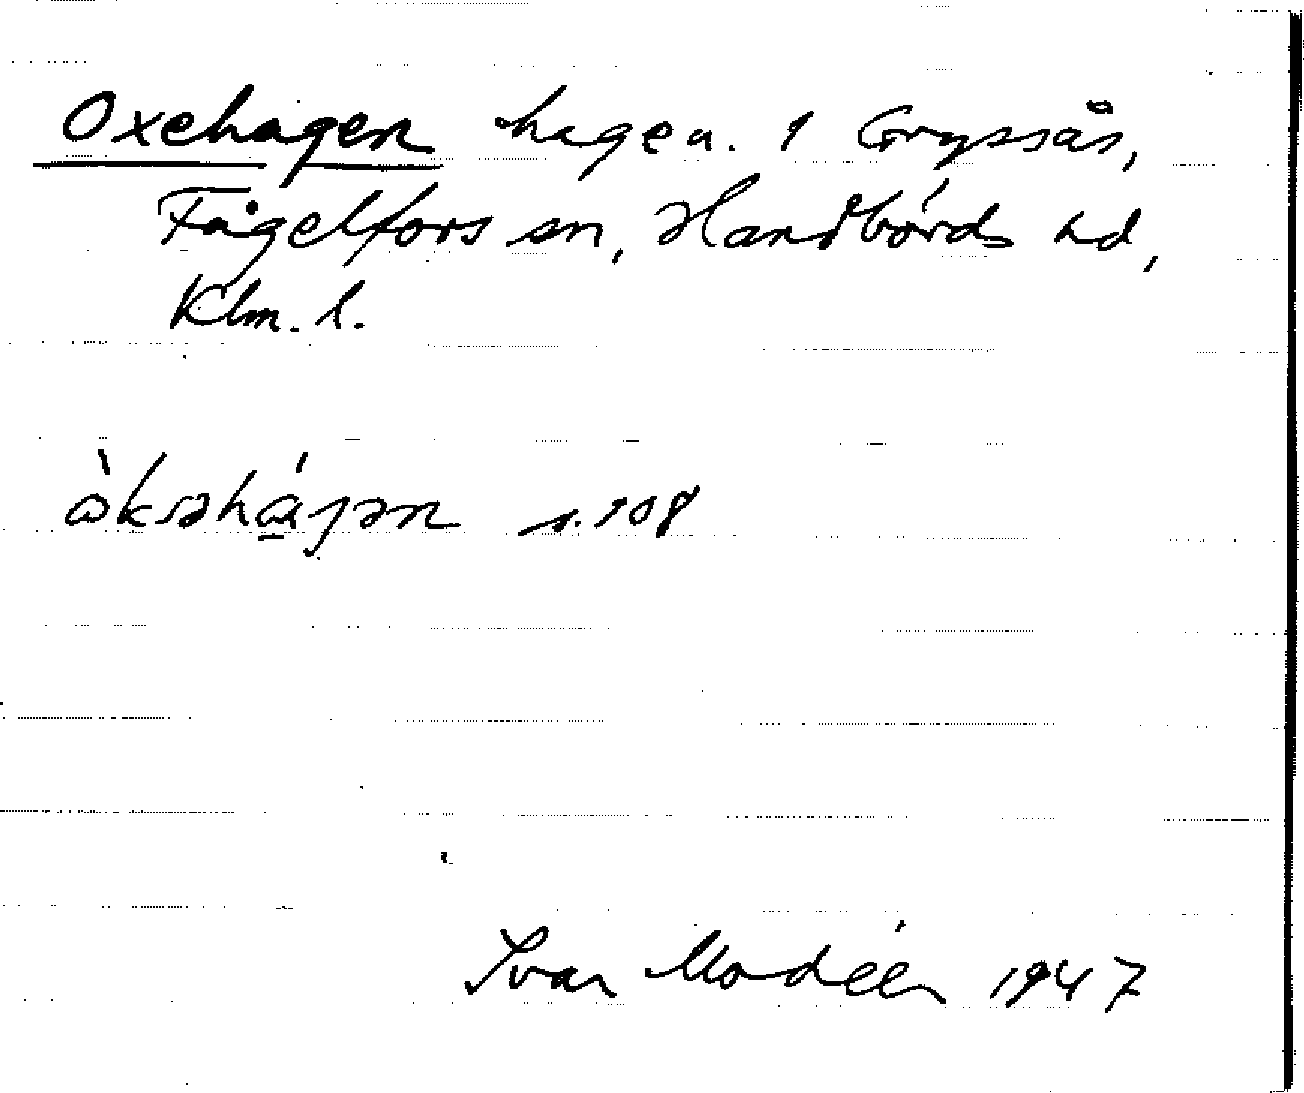 Oxehagen hage n. 1 Gryssås,
Fågelfors sn, Handbörds hd,
Klm. l.
s. 108
Ivar Modéer 1947